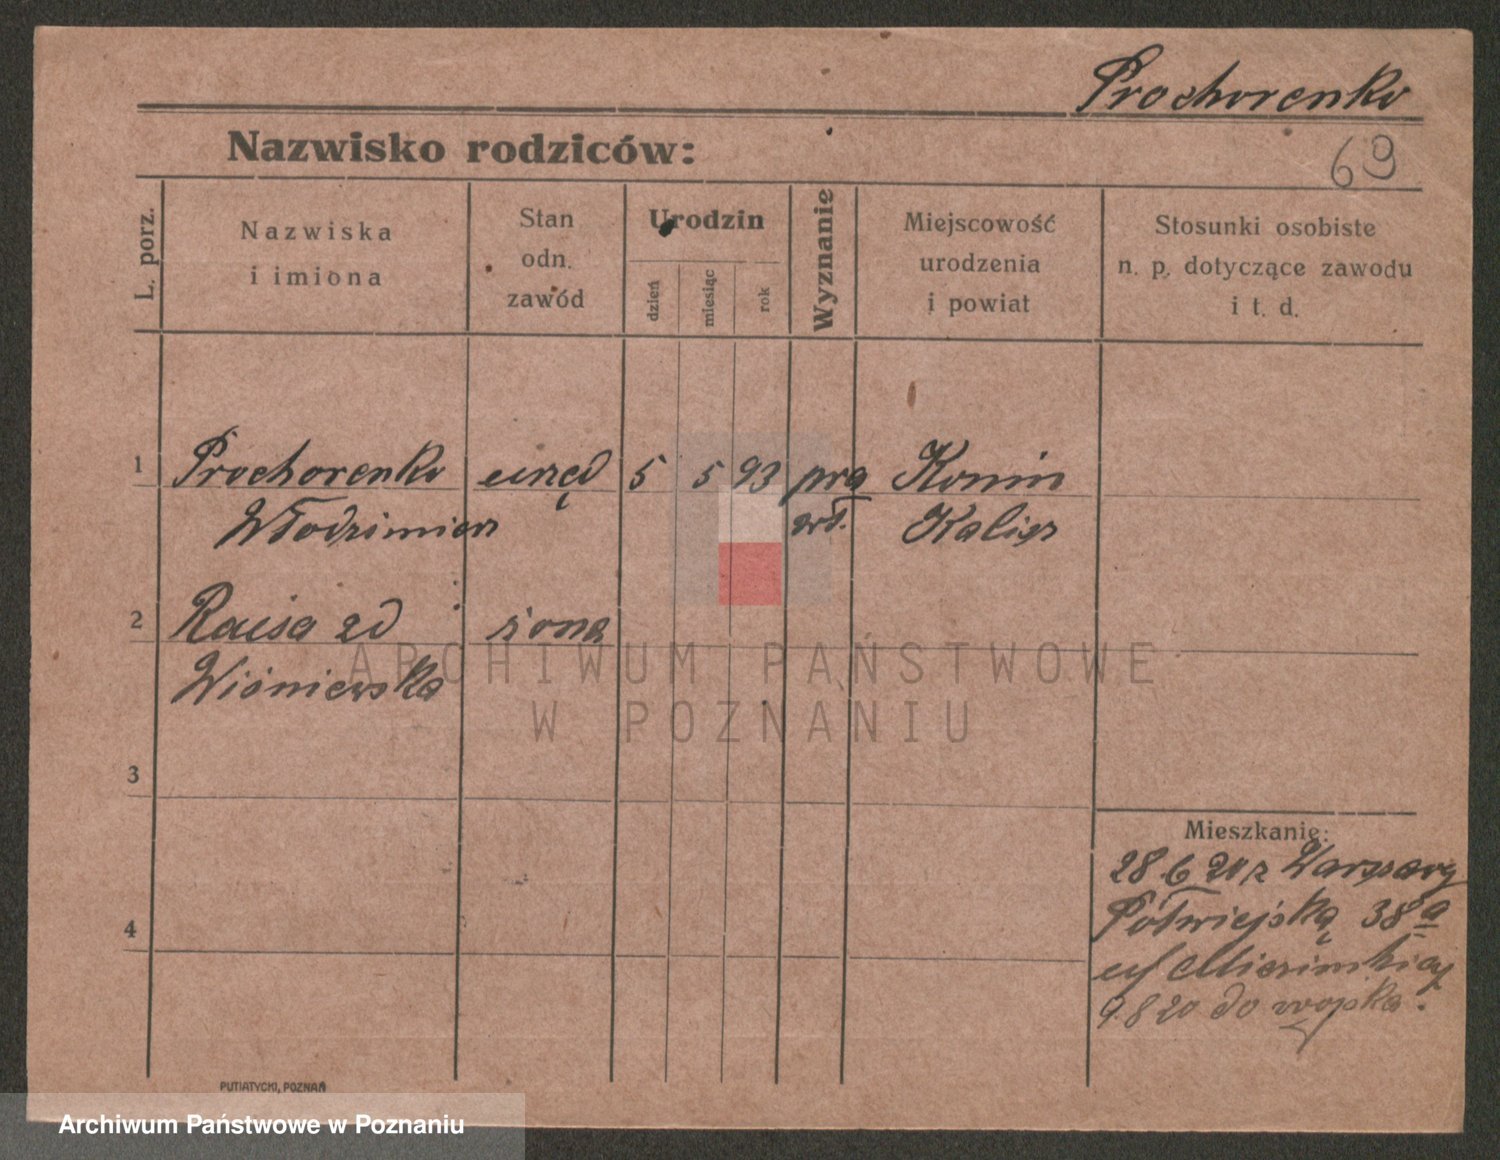 Prochorenko
69
Nazwisko rodziców:
L. porz.
Nazwiska
i imiona
Stan
odn.
zawód
Urodzin
dzień
miesiąc
rok
Wyznanie
Miejscowość
urodzenia
i powiat
Stosunki osobiste
n. p. dotyczące zawodu
i t. d.
1 Prochorenko urzęd 5 5 93 pra Konin
Włodzimierz wł. Kalisz
2 Raisa zd żona
Wiśniewska
3
4
Mieszkanie:
28 6 20 z Warszawy
Półwiejska 38a
9.8 20 do wojska.
PUTIATYCKI, POZNAŃ
ARCHIWUM PAŃSTWOWE
W POZNANIU
Archiwum Państwowe w Poznaniu